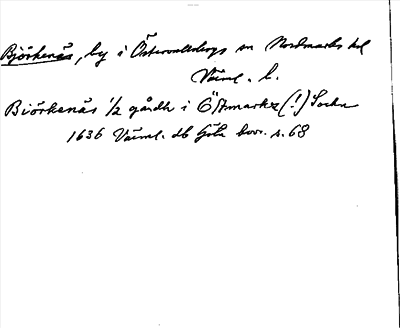 Björkenäs, by i Östervallskogs sn Nordmarks hd
Värml. l.
Biörkenäs 1/2 gårdh i Östmarkz (!) Sochn
1636 Värml. db Göta hovr. s. 68